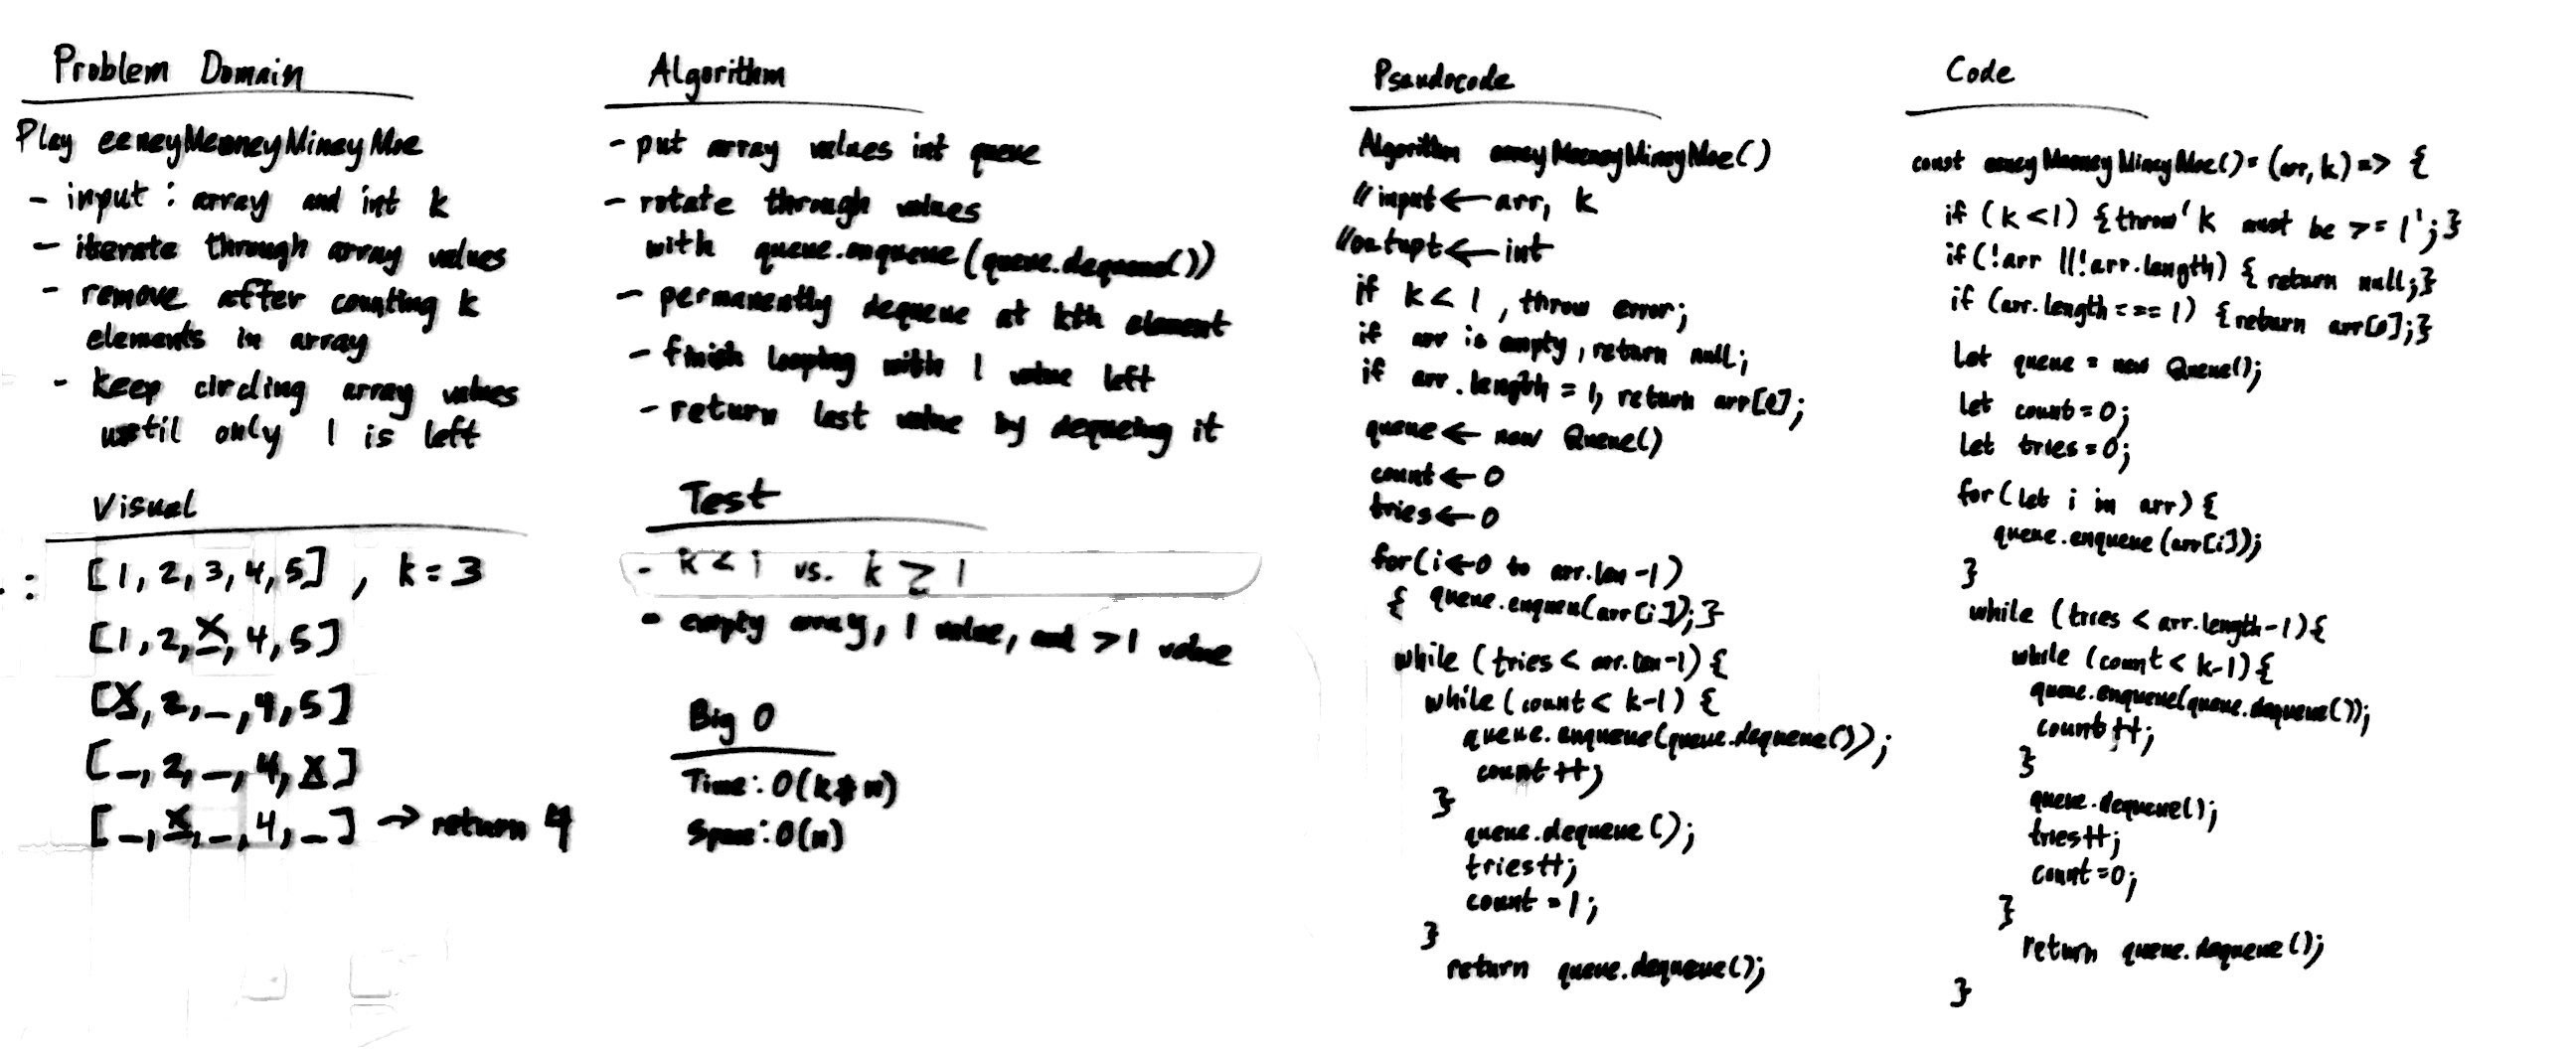 Problem Domain
Play eeneyMeeneyMineyMoe
- input : array and int k
- iterate through array values
- remove after counting k
elements in array
- keep circling array values
until only 1 is left
Visual
: [1, 2, 3, 4, 5] , k = 3
[1, 2, X, 4, 5]
[X, 2, _, 4, 5]
[_, 2, _, 4, X]
[_, X, _, 4, _] → return 4
Algorithm
- put array values int queue
- rotate through values
with queue.enqueue(queue.dequeue())
- permanently dequeue at kth element
- finish looping with 1 value left
- return last value by dequeing it
Test
- k < 1 vs. k ≥ 1
- empty array, 1 value, and >1 value
Big O
Time: O(k*n)
Space: O(n)
Pseudocode
Algorithm eeneyMeeneyMineyMoe()
// input ← arr, k
// outupt ← int
if k < 1 , throw error;
if arr is empty, return null;
if arr.length = 1, return arr[0];
queue ← new Queue()
count ← 0
tries ← 0
for(i ← 0 to arr.len -1)
{ queue.enqueu(arr[i]);}
while (tries < arr.len-1) {
while (count < k-1) {
queue.enqueue(queue.dequeue());
count++;
}
queue.dequeue();
tries++;
count = 1;
}
return queue.dequeue();
Code
const eeneyMeeneyMineyMoe() = (arr, k) => {
if (k < 1) {throw 'k must be >= 1';}
if (!arr || !arr.length) { return null;}
if (arr.length === 1) {return arr[0];}
let queue = new Queue();
let count = 0;
let tries = 0;
for (let i in arr) {
queue.enqueue(arr[i]);
}
while (tries < arr.length-1){
while (count < k-1) {
queue.enqueue(queue.dequeue());
count++;
}
queue.dequeue();
tries++;
count=0;
}
return queue.dequeue();
}